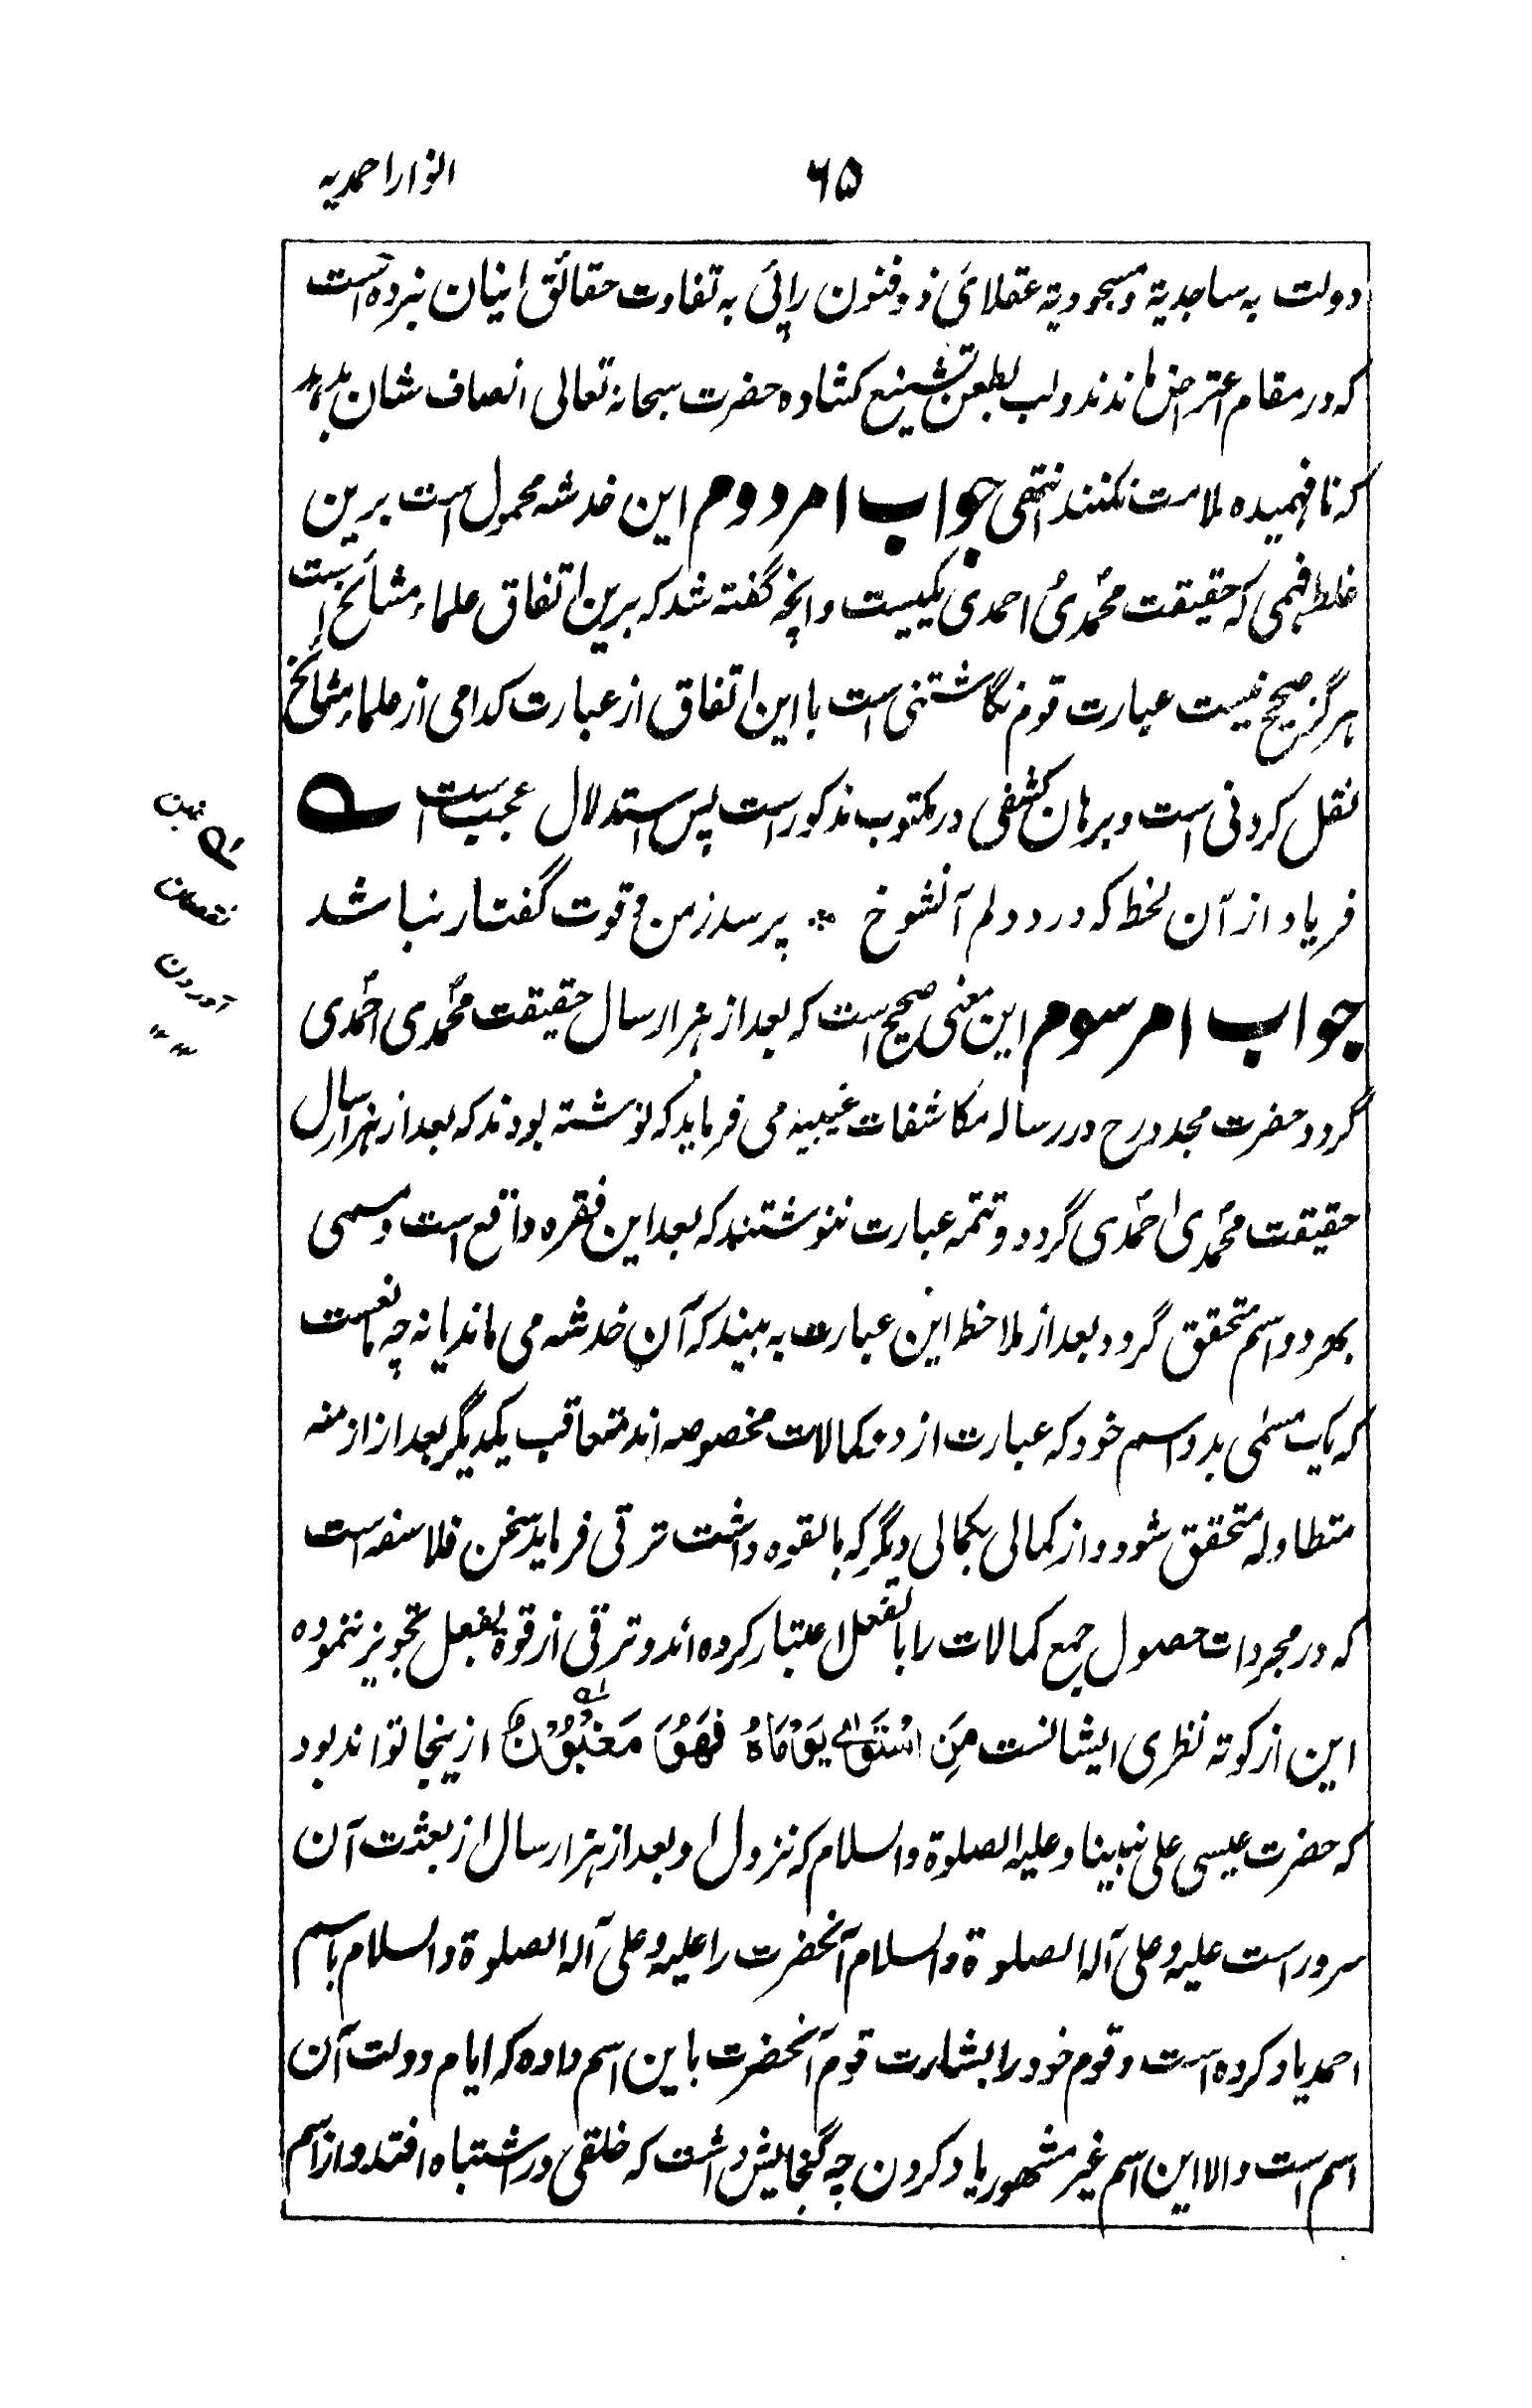 ۶۵
انوار احمدیه
دولت به ساجدیة ومسجودیة عقلائی ذو فنون راپئی به تفاوت حقائق اینان نبرده است
که در مقام اعتراض ماندند ولب بطعن تشنیع کشاده حضرت سبحانه تعالی انصاف شان بدهد
که نافهمیده ملامت نکنند انتهی جواب امر دوم این خدشه محمول است برین
غلط فهمی که حقیقت محمدی احمدی یکیست وانچه گفته شد که برین اتفاق علماء مشائخ است
هرگز صحیح نیست عبارت قوم نگاشتنی است با این اتفاق از عبارت کدامی از علماء مشائخ
نقل کردنی است وبرهان کشفی در مکتوب مذکور است پس استدلال عجب است
فریاد از آن لحظ که درد دلم آنشوخ ؞ پرسد زمن و قوت گفتار نباشد
جواب امر سوم این معنی صحیح است که بعد از هزار سال حقیقت محمدی احمدی
گردد حضرت مجدد رح در رساله مکاشفات غیبیه می فرماید که نوشته بودند که بعد از هزار سال
حقیقت محمدی احمدی گردد وتتمه عبارت ننوشتند که بعد این فقره واقع است ومسمی
بهر دو اسم متحقق گردد بعد از ملاحظ این عبارت به بینید که آن خدشه می ماند یا نه چه مانعست
که یک مسمی بدو اسم خود که عبارت از دو کمالات مخصوصه اند متعاقب یکدیگر بعد از ازمنه
متطاوله متحقق شود واز کمالی بکمالی دیگر که بالقوه داشت ترقی فرماید سخن فلاسفه است
که در مجردات حصول جمیع کمالات را بالفعل اعتبار کرده اند وترقی از قوة بفعل تجویز ننموده
این از کوته نظری ایشانست مَنِ اسْتَوىٰ يَوْمَاهُ فَهُوَ مَغْبُوْنٌ ازینجا تواند بود
که حضرت عیسی علی نبینا وعلیه الصلوة والسلام که نزول او بعد از هزار سال از بعثت آن
سرور است علیه وعلی آله الصلوة والسلام آنحضرت را علیه وعلی آله الصلوة والسلام باسم
احمد یاد کرده است وقوم خود را بشارت قوم آنحضرت باین اسم داده که ایام دولت آن
اسم است والا این اسم غیر مشهور یاد کردن چه گنجایش داشت که خلقی در اشتباه افتد واز اسم
غبن
نقصان
آوردن